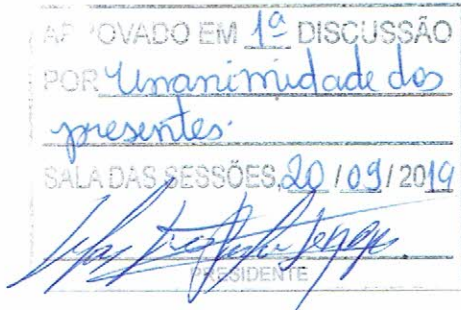 APROVADO EM 1ª DISCUSSÃO
POR Unanimidade dos
presentes.
SALA DAS SESSÕES, 20 / 09 / 2019
PRESIDENTE